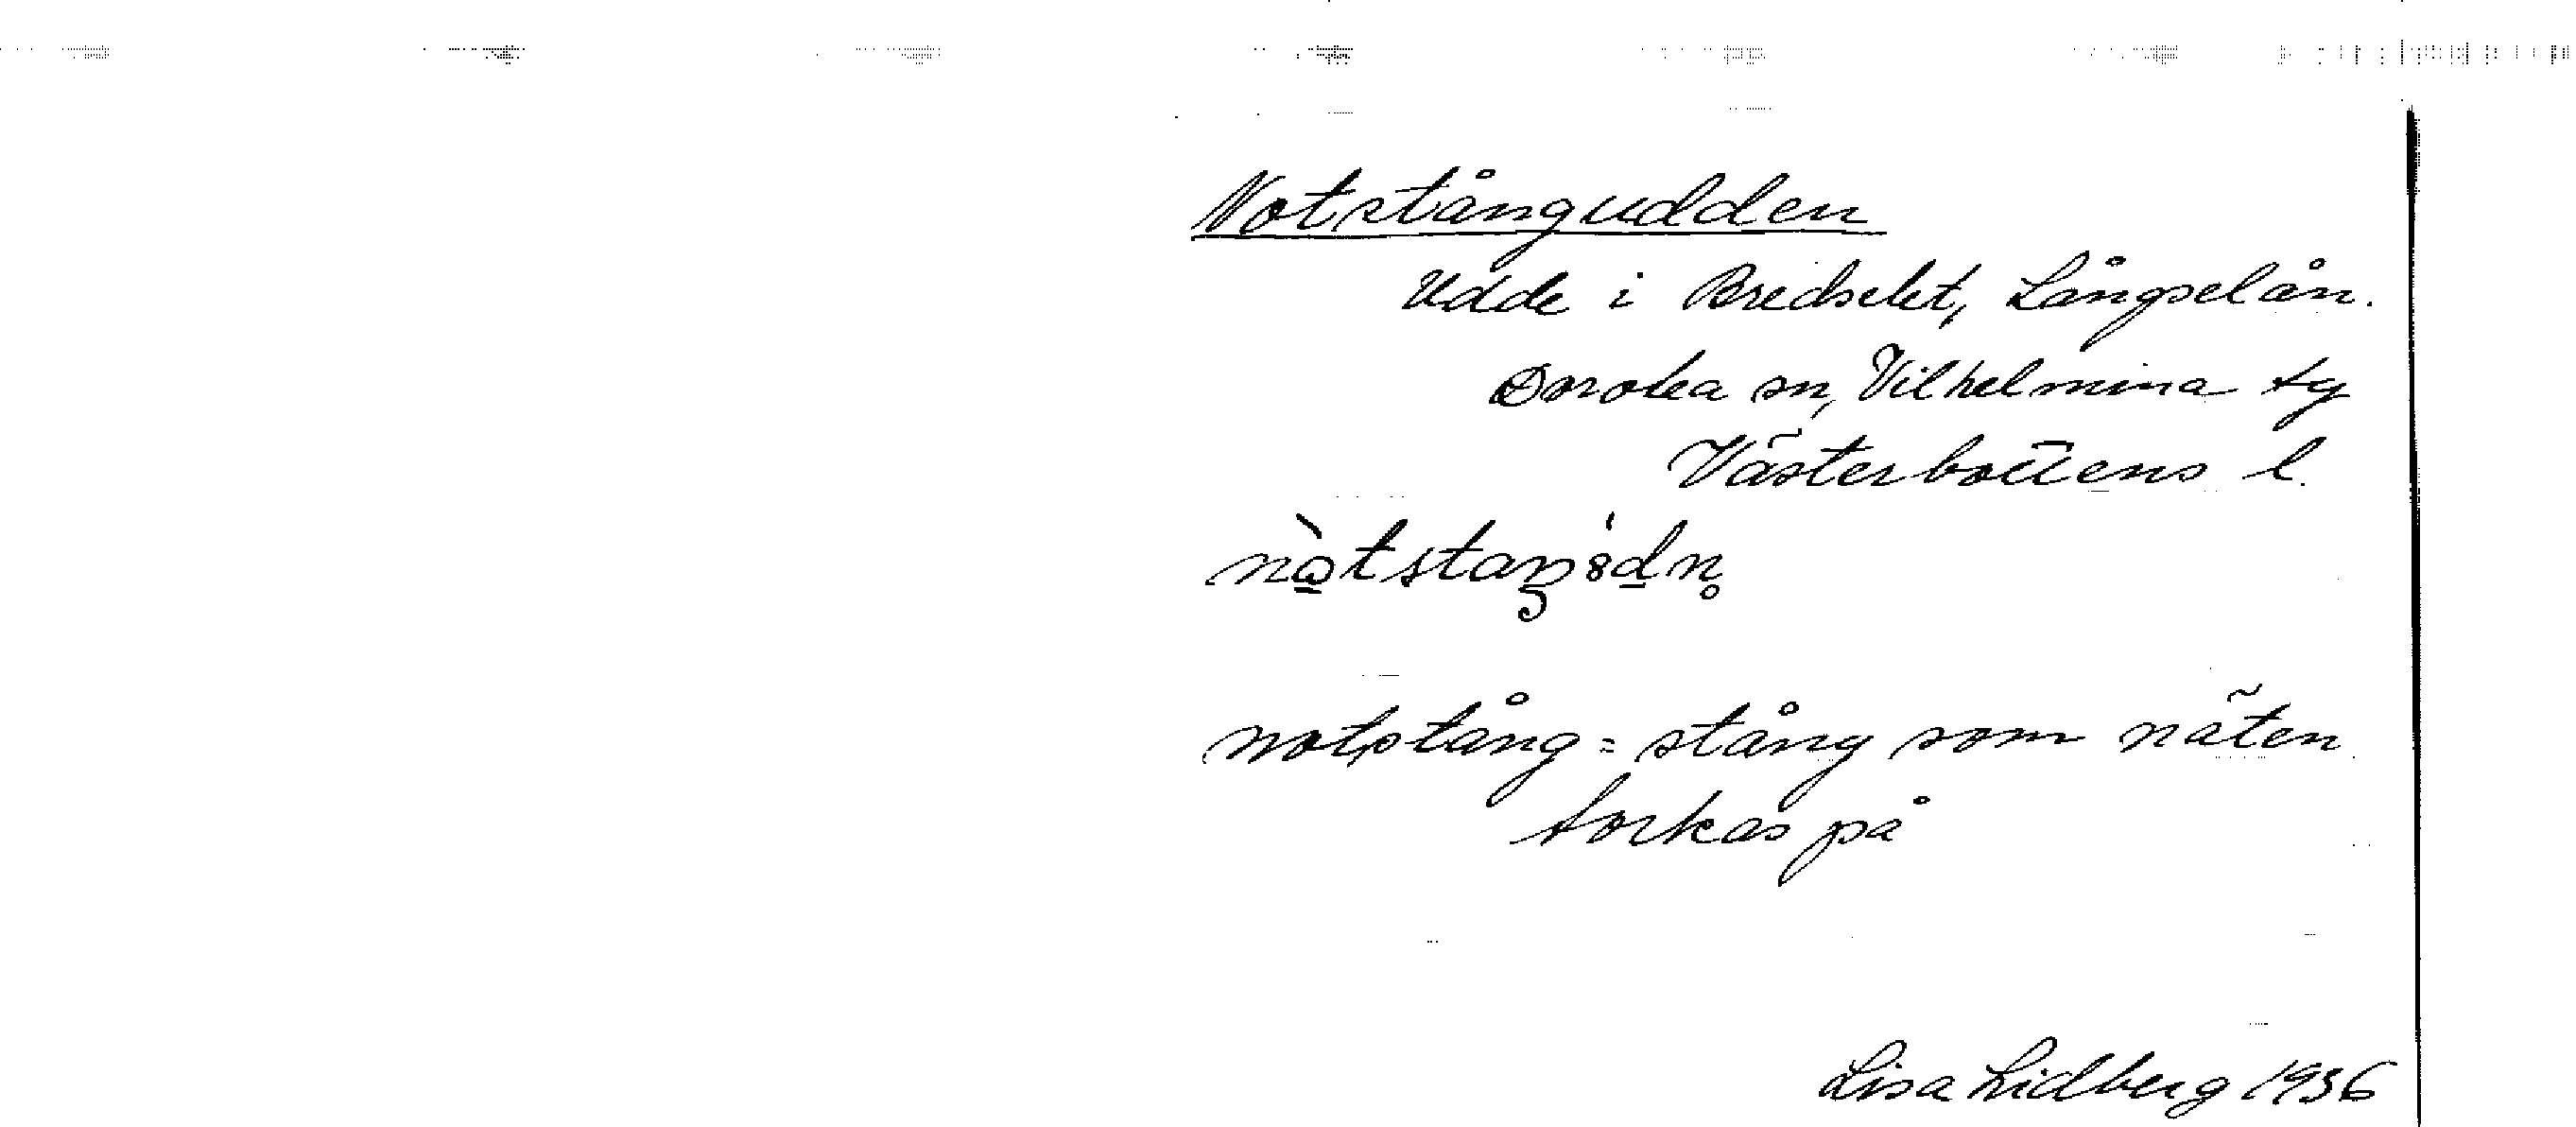 Notstångudden
Udde i Bredselet, Långselån.
Dorotea sn, Vilhelmina tg
Västerbottens l.
notstång = stång som näten
torkas på
Lisa Lidberg 1936